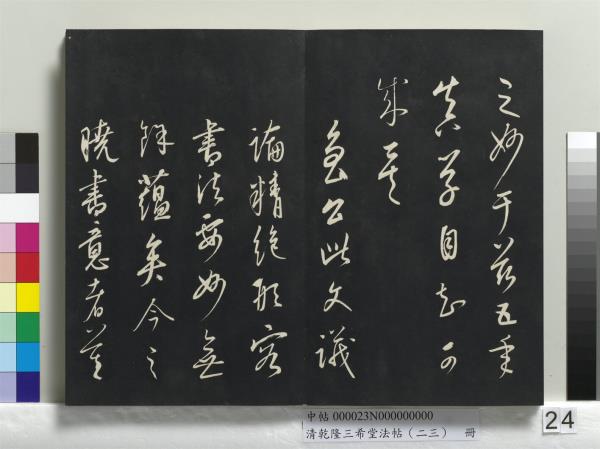 之妙于茲五年
真草自知可
成矣
魯公此文議
論精絕形容
書法要妙無
餘蘊矣今之
曉書意者蓋
中帖 000023N000000000
清乾隆三希堂法帖(二三) 冊
24